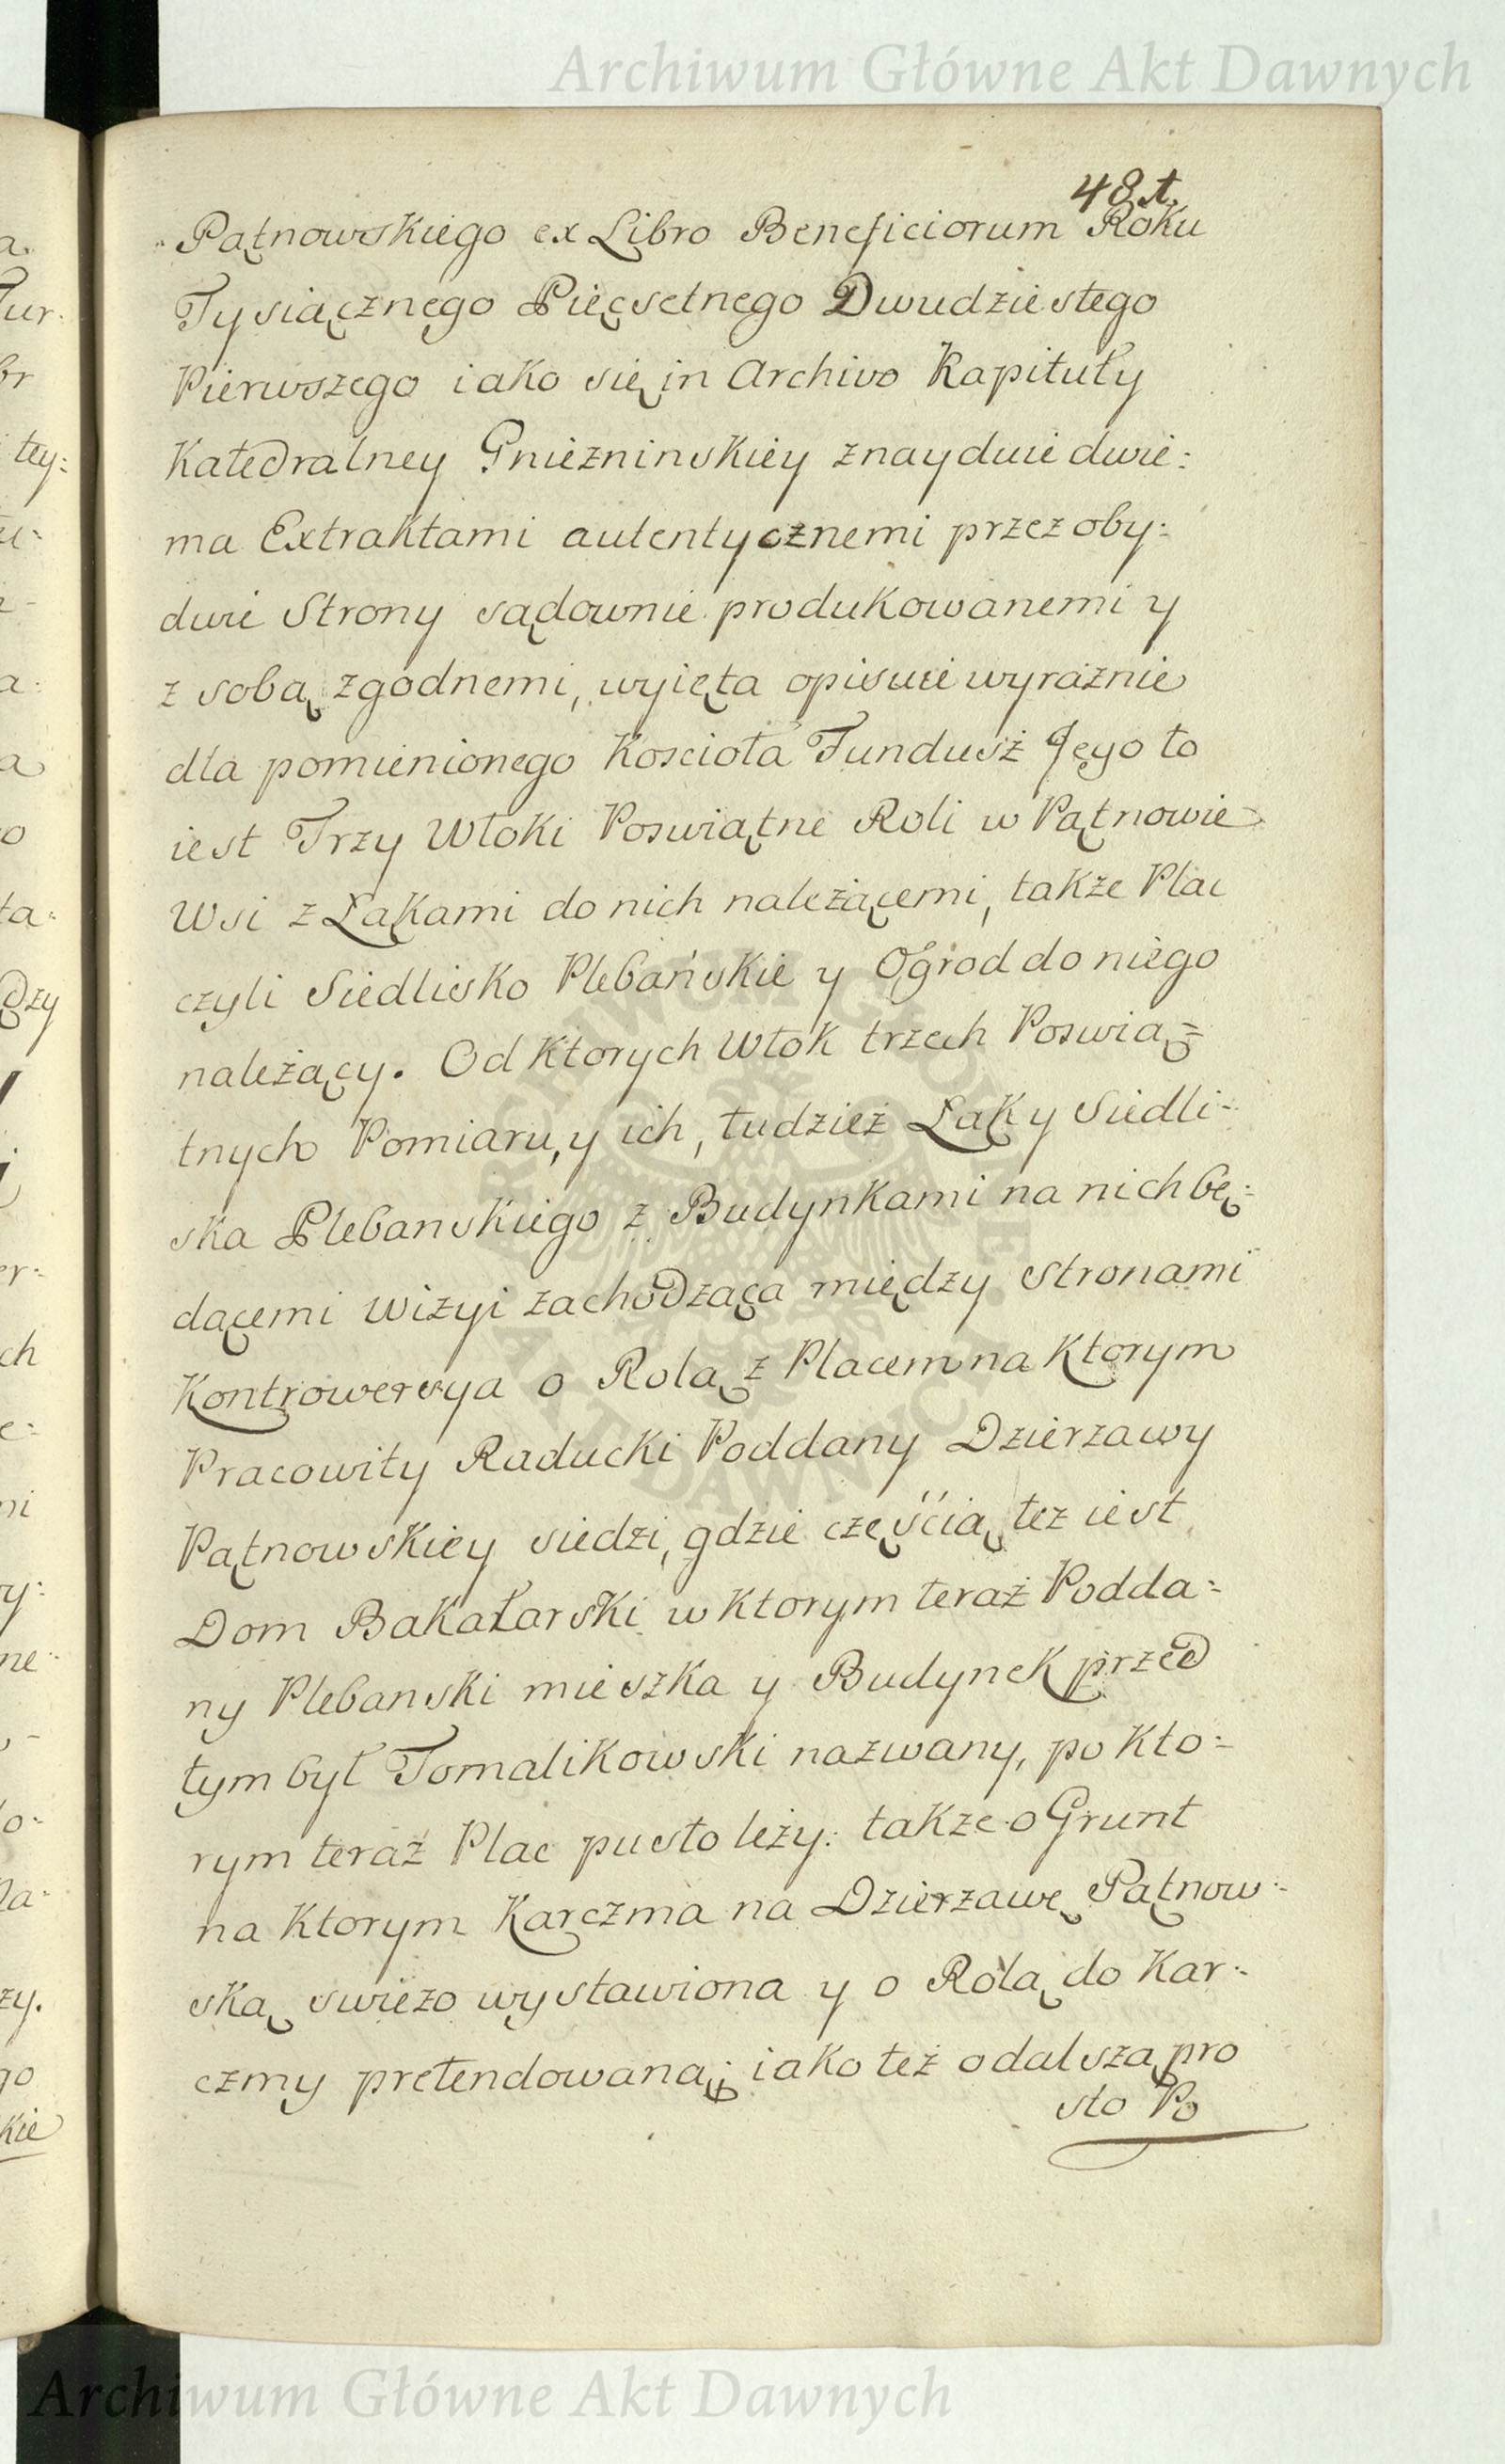 Archiwum Główne Akt Dawnych
48 t.
Pątnowskiego ex Libro Beneficiorum Roku
Tysiącznego Pięcsetnego Dwudziestego
Pierwszego iako się in Archivo Kapituły
Katedralney Gnieżninskiey znayduie dwie:
ma Extraktami autentycznemi przez oby:
dwie Strony sądownie produkowanemi y
z sobą zgodnemi, wyięta opisuie wyrażnie
dla pomienionego Koscioła Fundusż Jego to
iest Trzy Włoki Poswiątne Roli w Pątnowie
Wsi z Łąkami do nich należącemi, także Plac
czyli Siedlisko Plebańskie y Ogrod do niego
należący. Od Ktorych Włok trzech Poswią=
tnych Pomiaru, y ich, tudzież Łąk y Siedli-
ska Plebanskiego z Budynkami na nich bę:
dącemi wizyi zachodząca między Stronami
Kontrowersya o Rolą z Placem na Ktorym
Pracowity Raducki Poddany Dzierzawy
Pątnowskiey siedzi, gdzie częścią też iest
Dom Bakałarski w Ktorym teraż Podda=
ny Plebanski mieszka y Budynek przed
tym był Tomalikowski nazwany, po Kto=
rym teraż Plac pusto leży: także o Grunt
na Ktorym Karczma na Dzierzawę Pątnow=
ską swieżo wystawiona y o Rolą do Kar=
czmy pretendowaną; iako też o dalszą pro
sto Po
a.
tey:
a:
a
o
ta:
dzy
er:
ch
ni
y:
ne
o:
zy.
go
kie
ARCHIWUM GŁÓWNE AKT DAWNYCH
Archiwum Główne Akt Dawnych